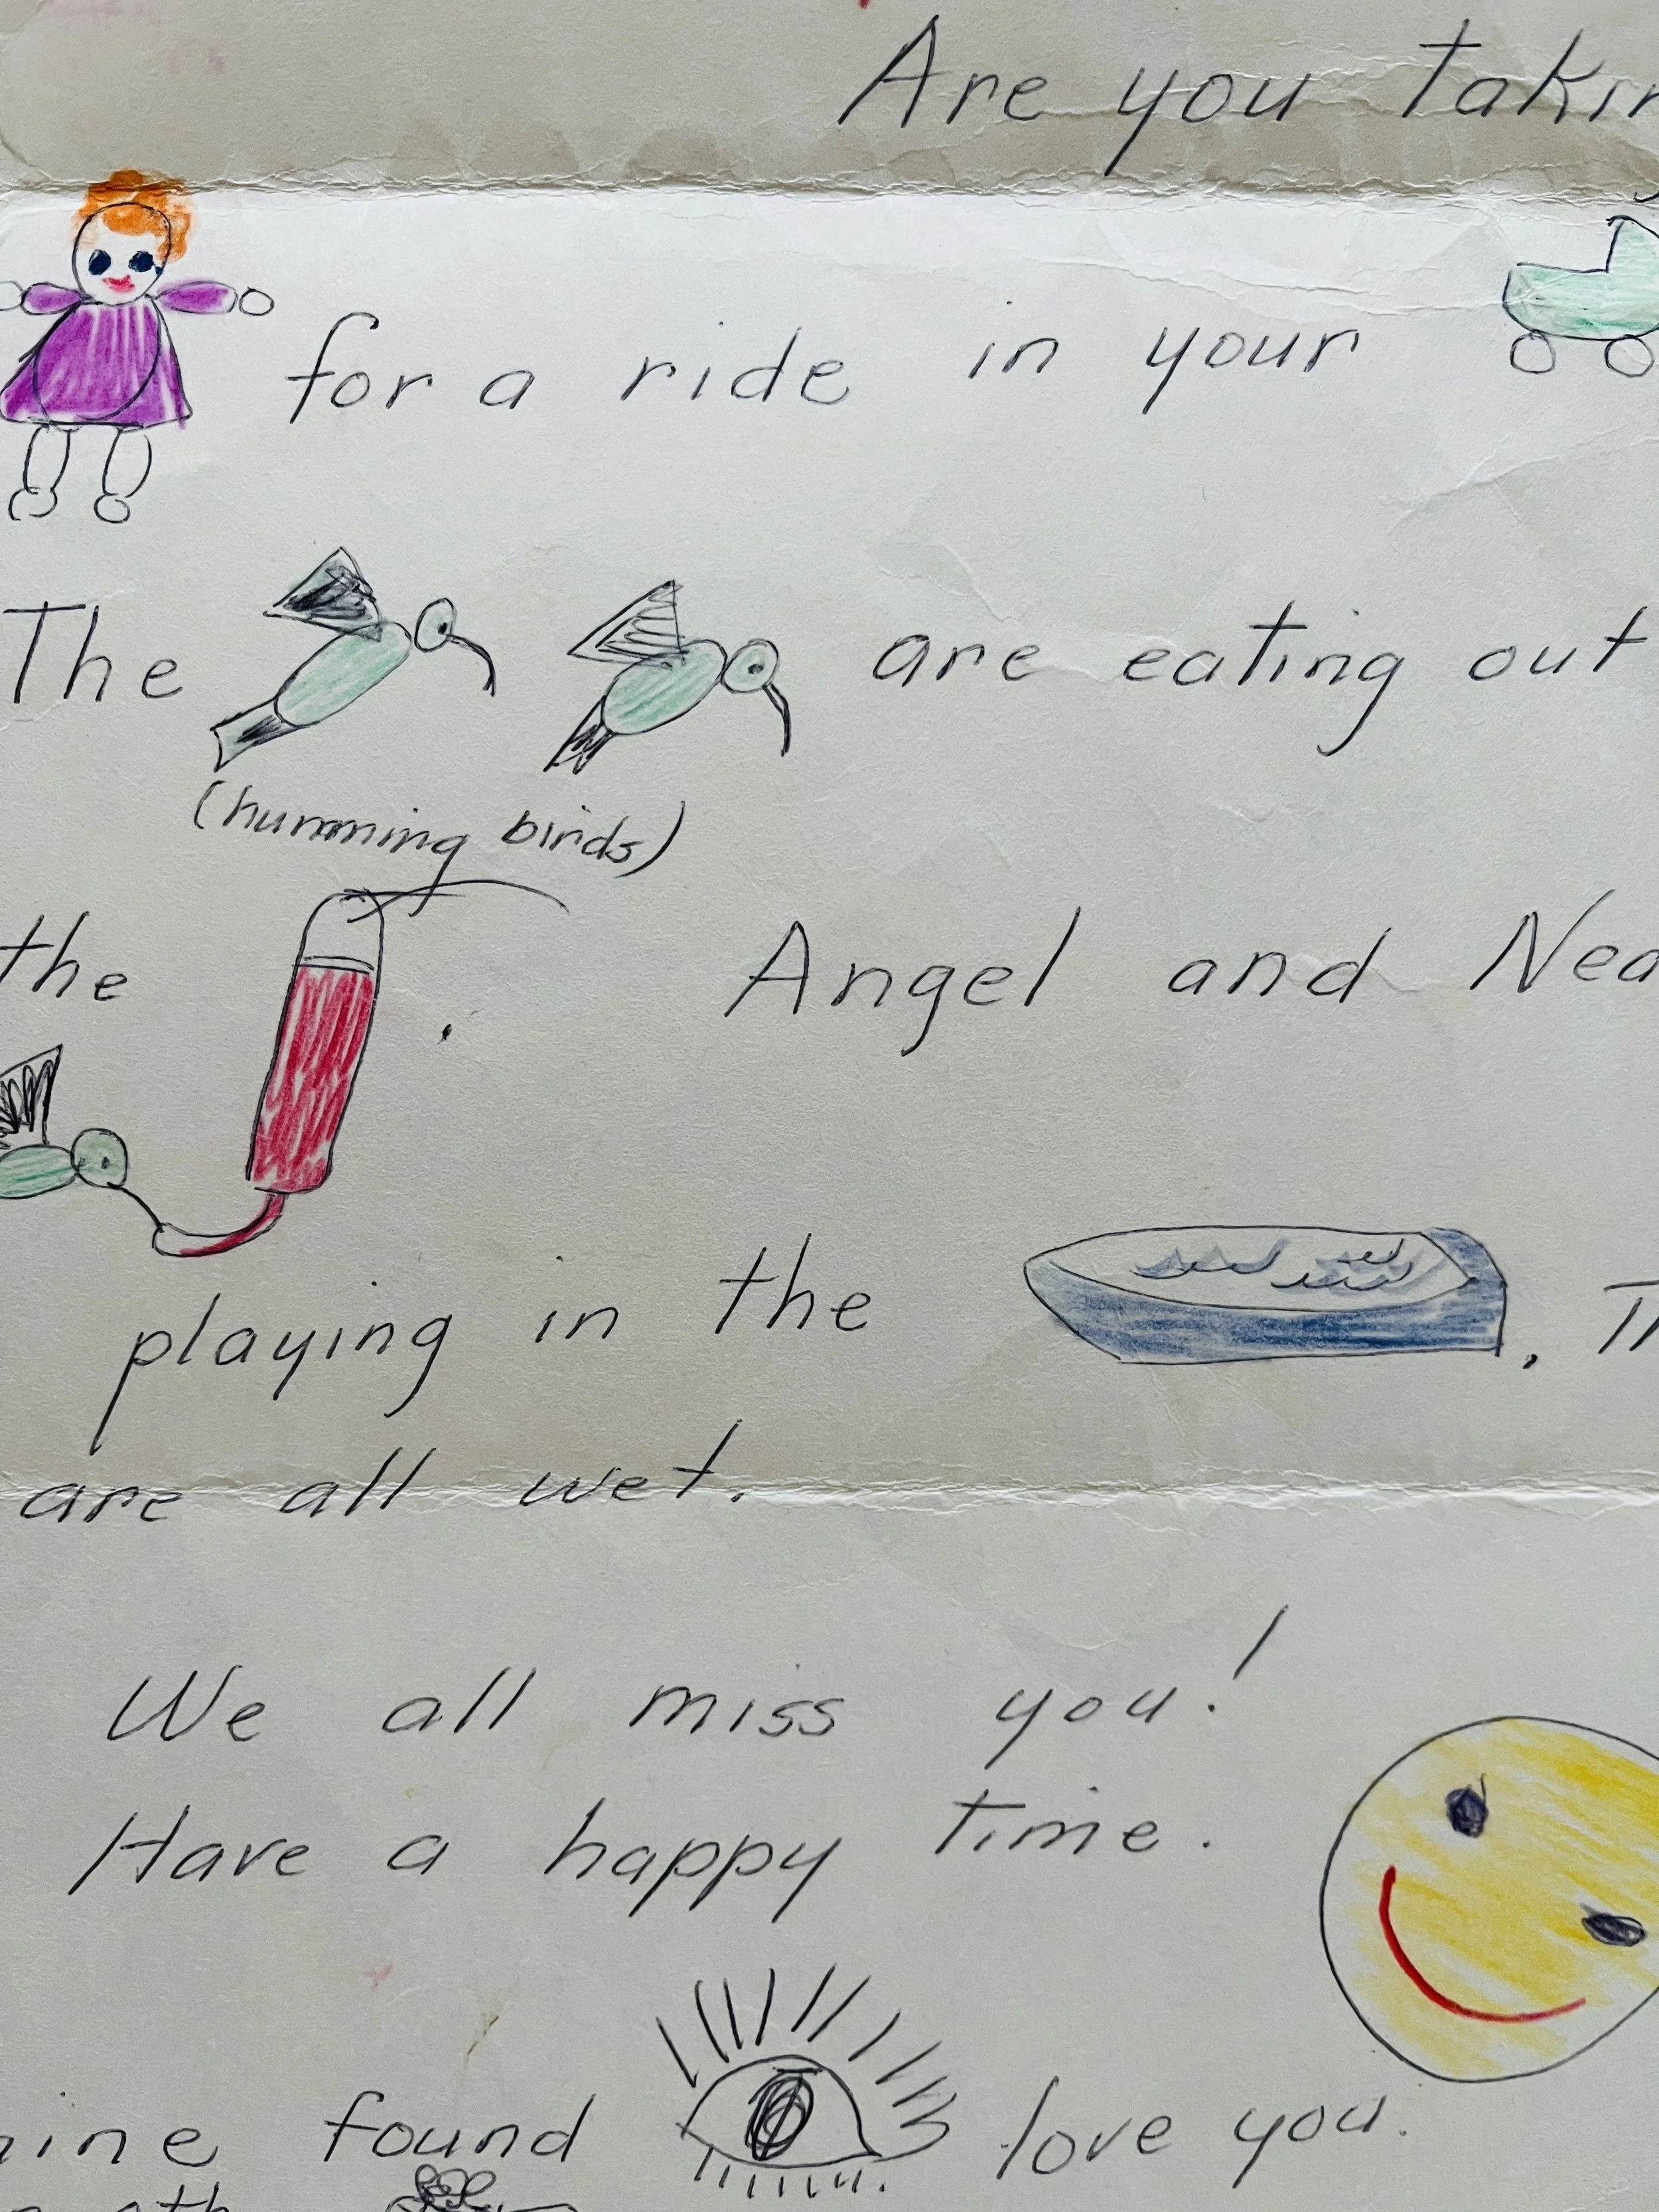 Are you
for a ride in your
The are eating out
(humming birds)
the . Angel and
playing in the .
are all wet.
We all miss you!
Have a happy time.
found love you.